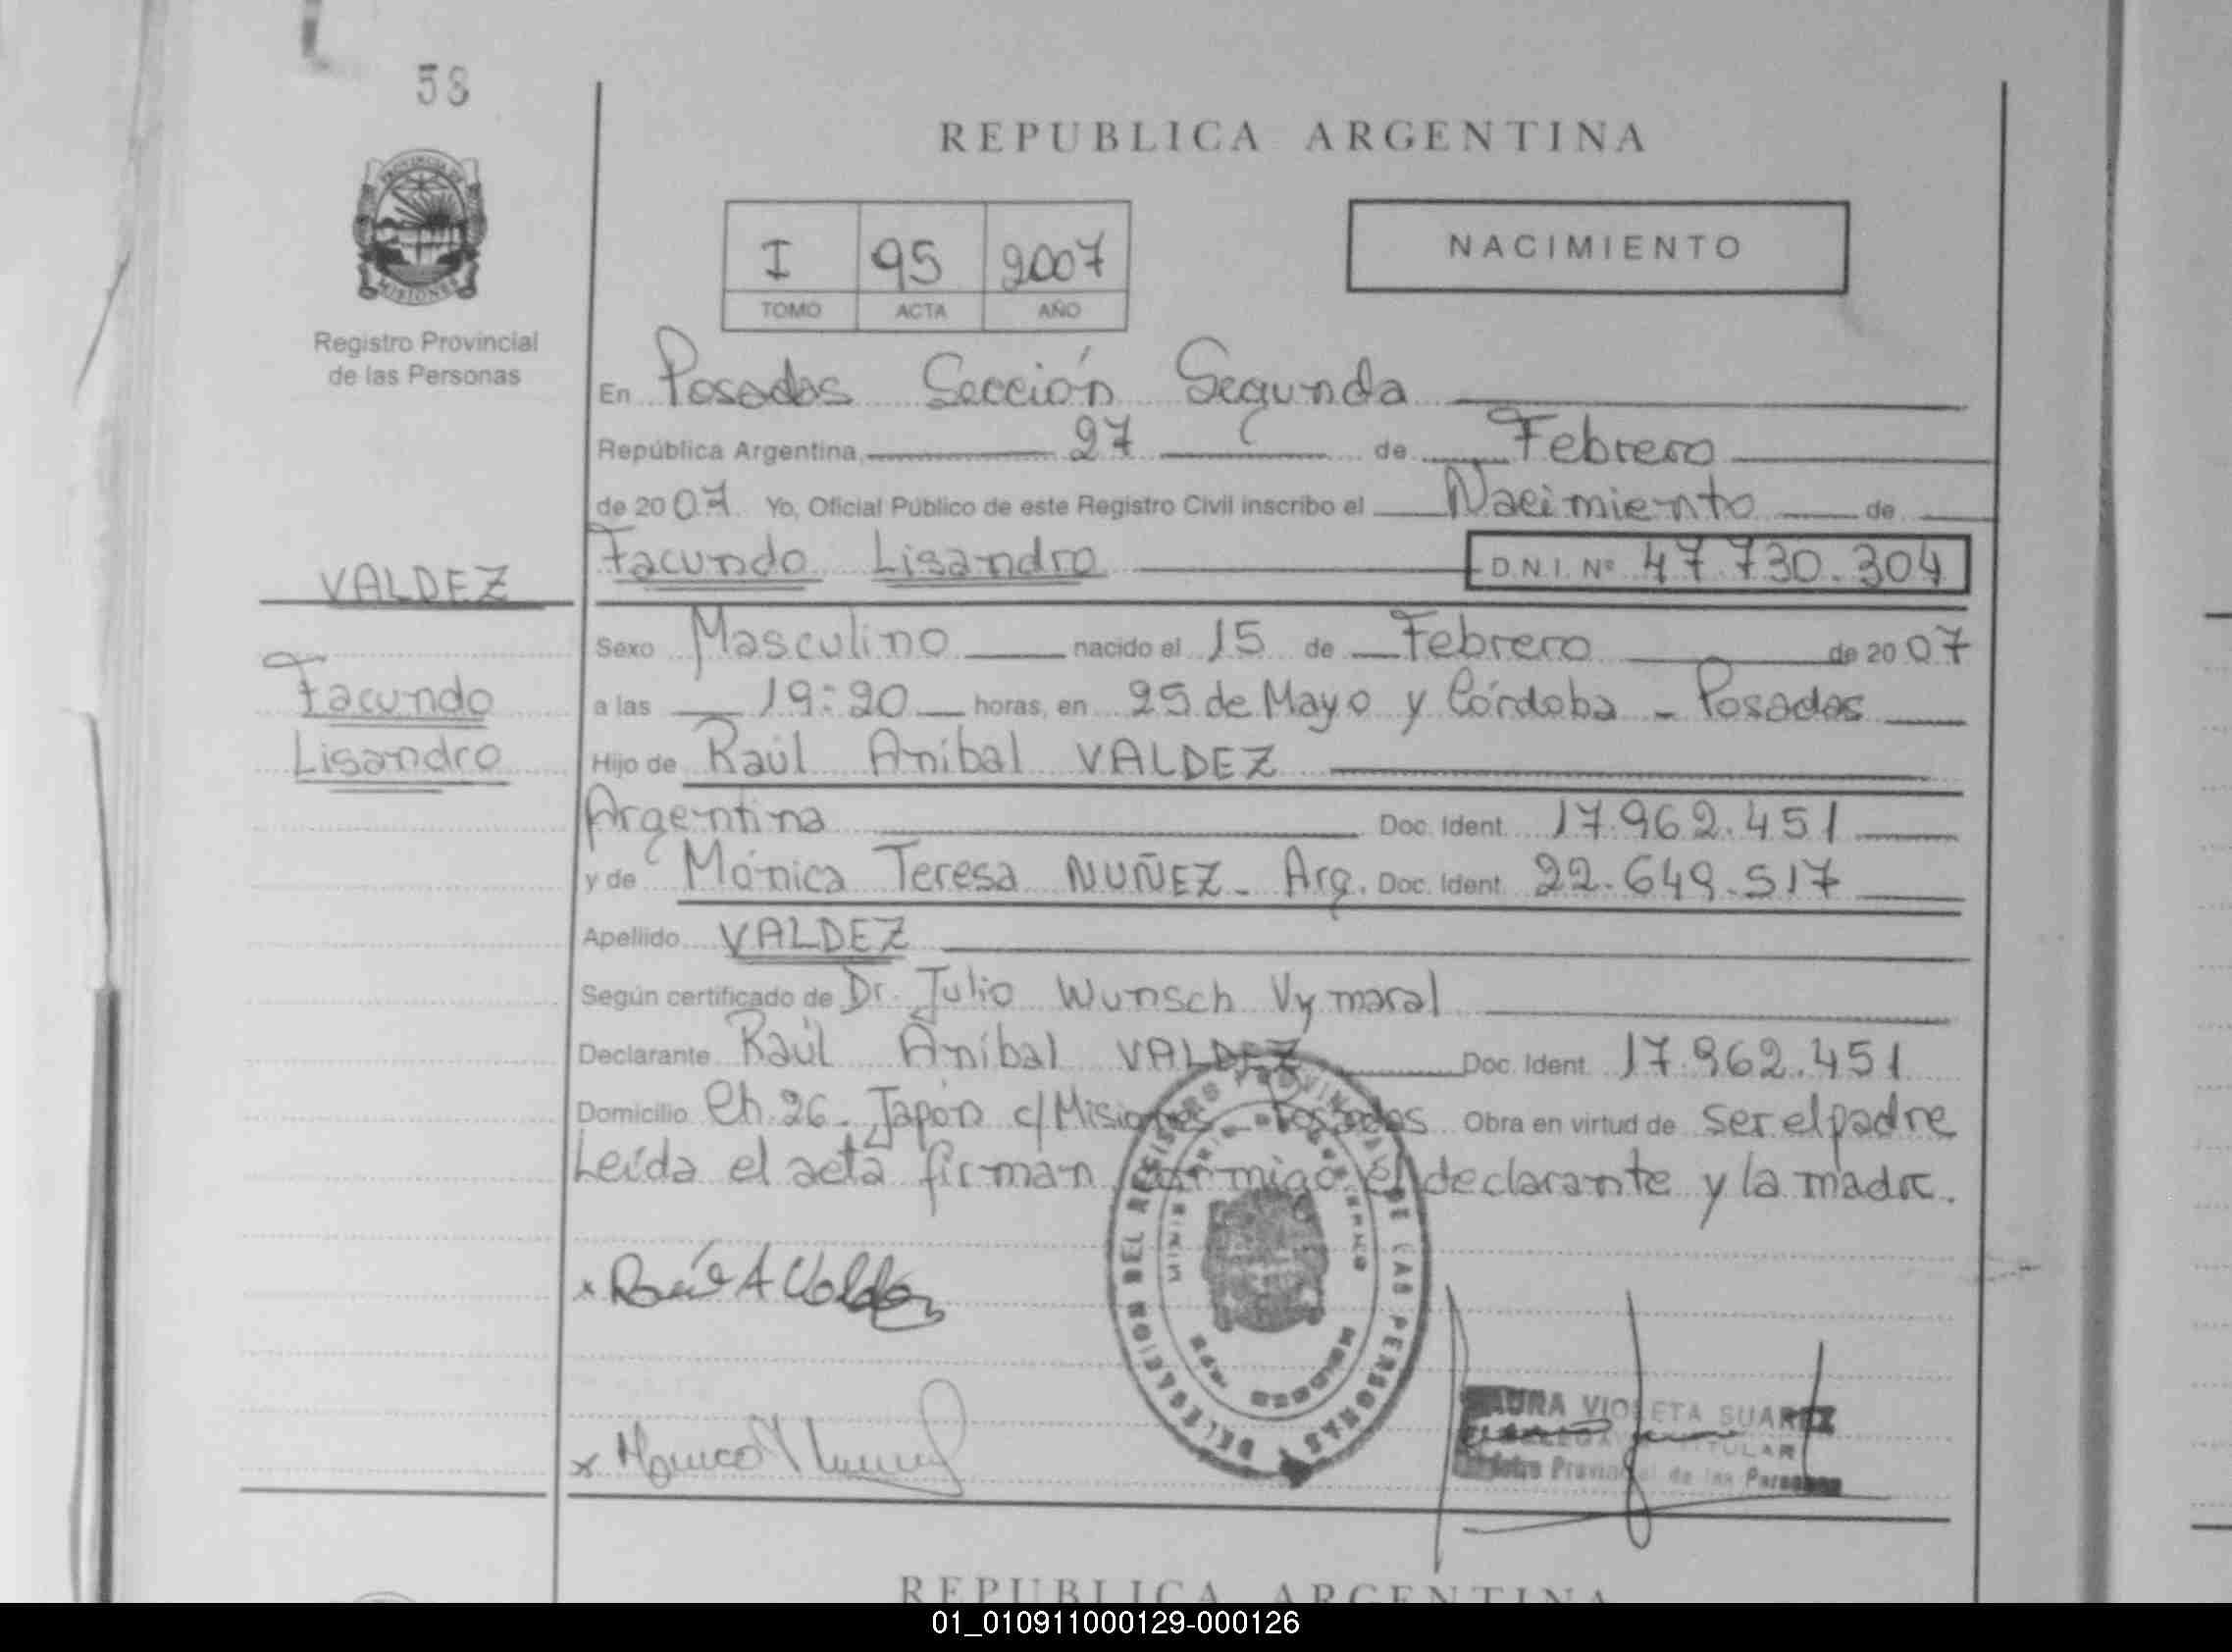 58
REPUBLICA ARGENTINA
PROVINCIA DE
MISIONES
Registro Provincial
de las Personas
I 95 2007
TOMO ACTA AÑO
NACIMIENTO
En Posadas Sección Segunda
República Argentina, 27 de Febrero
de 2007 Yo, Oficial Público de este Registro Civil inscribo el Nacimiento de
VALDEZ
Facundo Lisandro D.N.I. Nº 47.730.304
Sexo Masculino nacido el 15 de Febrero de 2007
Facundo
a las 19:20 horas, en 25 de Mayo y Córdoba - Posadas
Lisandro
Hijo de Raúl Aníbal VALDEZ
Argentina Doc. Ident. 17.962.451
y de Mónica Teresa NUÑEZ - Arg. Doc. Ident. 22.649.517
Apellido VALDEZ
Según certificado de Dr. Julio Wunsch Vymaral
Declarante Raúl Aníbal VALDEZ Doc. Ident. 17.962.451
Domicilio Ch. 26 - Japón c/ Misiones - Posadas Obra en virtud de ser el padre
Leída el acta firman conmigo el declarante y la madre.
Raúl A Valdez
DEL REGISTRO PROVINCIAL DE LAS PERSONAS
VIOLETA SUAREZ
TITULAR
Provincial de las Personas
REPUBLICA ARGENTINA
01_010911000129-000126